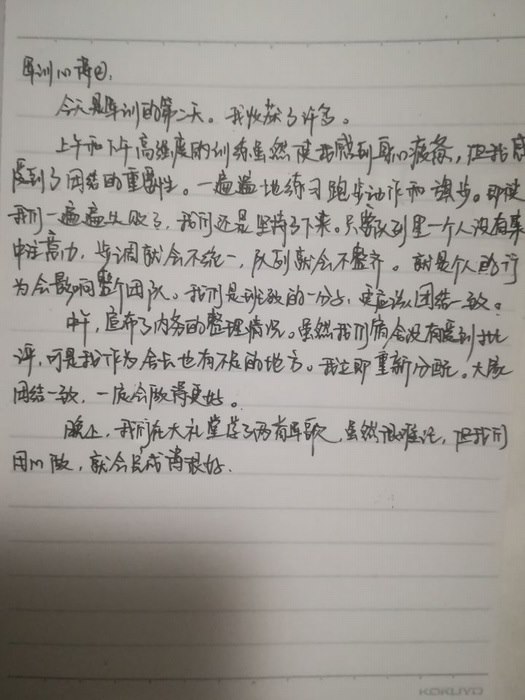 军训心得②.
今天是军训的第二天。我收获了许多。
上午和下午高强度的训练虽然使我感到身心疲惫，但我感
受到了团结的重要性。一遍遍地练习跑步动作和踏步。即使
我们一遍遍失败了，我们还是坚持了下来。只要队列里一个人没有集
中注意力，步调就会不统一，队列就会不整齐。就是个人的行
为会影响整个团队。我们是班级的一分子，更应该团结一致。
中午，宣布了内务的整理情况。虽然我们宿舍没有受到批
评，可是我作为舍长也有不足的地方。我立即重新分配。大家
团结一致，一定会做得更好。
晚上，我们在大礼堂学了两首军歌，虽然很难记，但我们
用心做，就会完成得很好.
KOKUYO